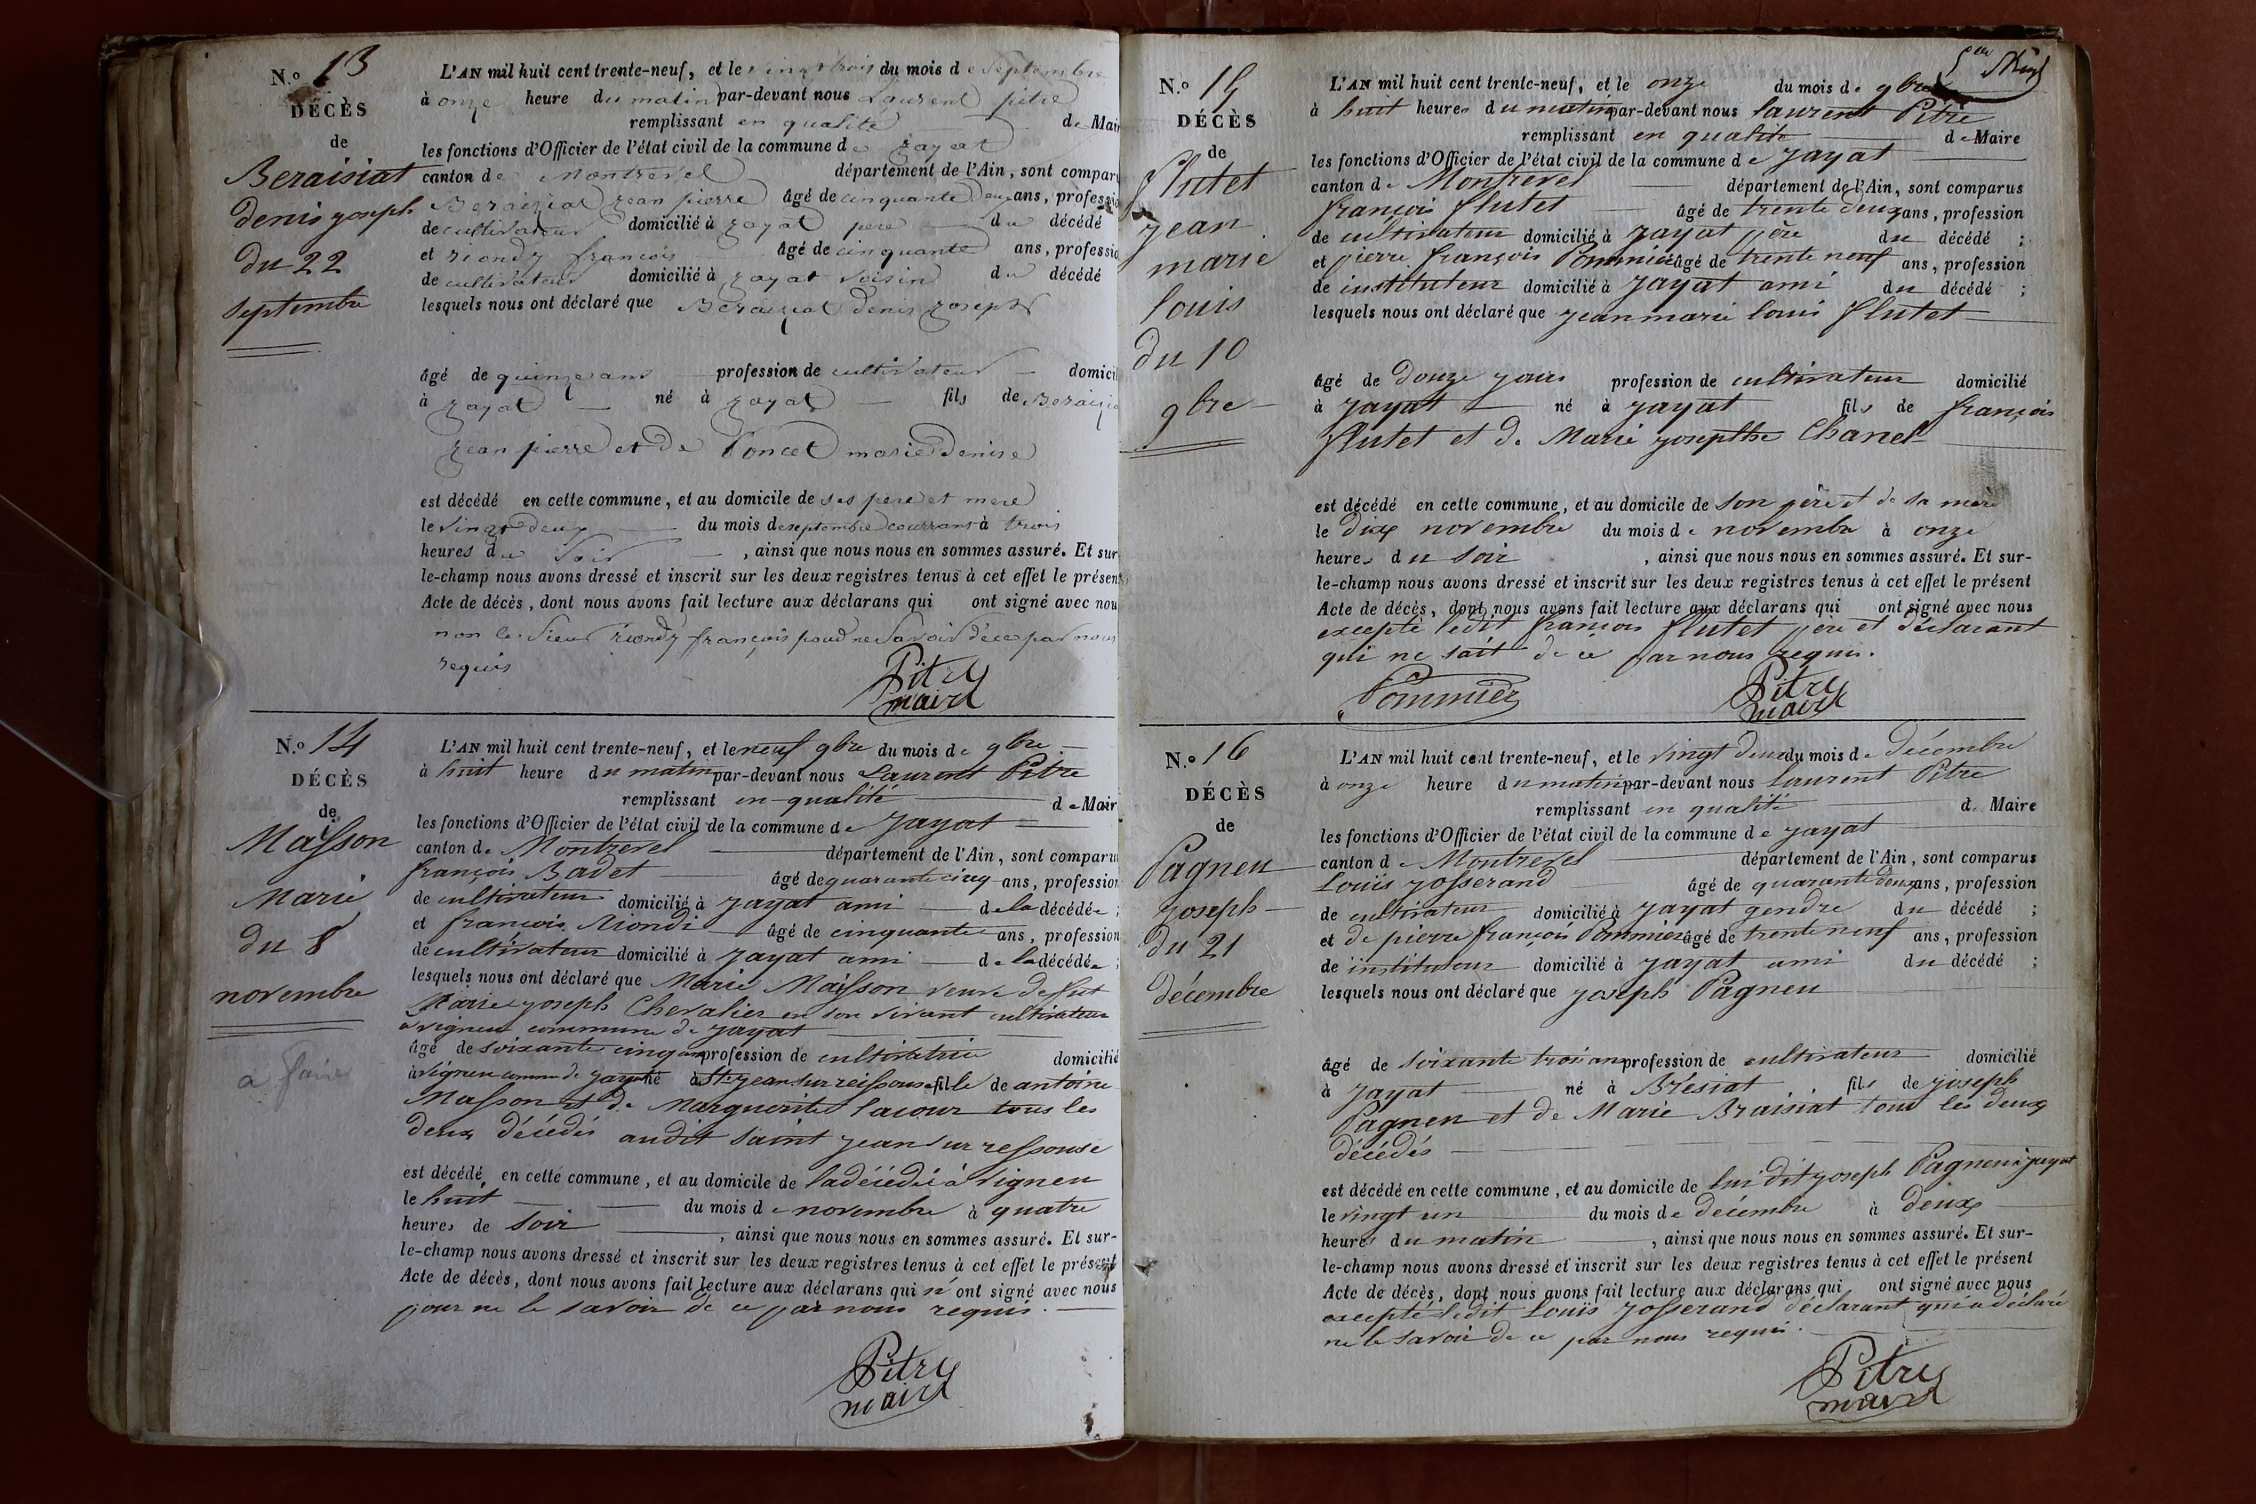 N.º 13
DÉCÈS
de
Beraisiat
denis joseph
du 22
septembre
L'AN mil huit cent trente-neuf, et le vingt trois du mois de septembre
à onze heure du matin par-devant nous Laurent pitre
remplissant en qualité de Mair
les fonctions d'Officier de l'état civil de la commune de jayat
canton de Montrevel département de l'Ain, sont comparu
Beraiziat jean pierre âgé de cinquante deux ans, professio
de cultivateur domicilié à jayat pere du décédé
et riondy françois âgé de cinquante ans, professio
de cultivateur domicilié à jayat voisin du décédé
lesquels nous ont déclaré que Beraiziat denis joseph
âgé de quinze ans profession de cultivateur domici
à jayat né à jayat fils de Beraizia
jean pierre et de Poncet marie denise
est décédé en cette commune, et au domicile de ses pere et mere
le vingt deux du mois de septembre courrant à trois
heures du soir, ainsi que nous nous en sommes assuré. Et sur
le-champ nous avons dressé et inscrit sur les deux registres tenus à cet effet le présen
Acte de décès, dont nous avons fait lecture aux déclarans qui ont signé avec nou
non le sieur riondy françois pour ne savoir de ce par nous
requis
Pitre
maire
N.º 14
DÉCÈS
de
Masson
Marie
du 8
novembre
a faire
L'AN mil huit cent trente-neuf, et le neuf 9bre du mois de 9bre
à huit heure du matin par-devant nous Laurent Pitre
remplissant en qualité de Mair
les fonctions d'Officier de l'état civil de la commune de Jayat
canton de Montrevel département de l'Ain, sont comparu
françois Badet âgé de quarante cinq ans, profession
de cultivateur domicilié à Jayat ami de la décédée ;
et françois Riondi âgé de cinquante ans, profession
de cultivateur domicilié à Jayat ami de la décédée ;
lesquels nous ont déclaré que Marie Masson veuve de fut
Marie joseph Chevalier en son vivant cultivateur
à vigneu commune de Jayat
âgé de soixante cinq ans profession de cultivatrice domicilié
à vigneu comune de jayat né à St jean sur reissouse fille de antoine
Masson et de Marguerite lacour tous les
deux décédés audit saint jean sur ressouse
est décédé, en cette commune, et au domicile de la décédée à Vigneu
le huit du mois de novembre à quatre
heures de soir, ainsi que nous nous en sommes assuré. Et sur-
le-champ nous avons dressé et inscrit sur les deux registres tenus à cet effet le présent
Acte de décès, dont nous avons fait lecture aux déclarans qui n'ont signé avec nous
pour ne le savoir de ce par nous requis.
Pitre
maire
N.º 15
DÉCÈS
de
flutet
jean
marie
louis
du 10
9bre
L'AN mil huit cent trente-neuf, et le onze du mois de 9bre
à huit heures du matin par-devant nous laurent Pitre
remplissant en qualité de Maire
les fonctions d'Officier de l'état civil de la commune de Jayat
canton de Montrevel département de l'Ain, sont comparus
françois flutet âgé de trente deux ans, profession
de cultivateur domicilié à Jayat père du décédé ;
et pierre françois Pommier âgé de trente neuf ans, profession
de instituteur domicilié à Jayat ami du décédé ;
lesquels nous ont déclaré que jean marie louis flutet
âgé de douze jours profession de cultivateur domicilié
à Jayat né à Jayat fils de françois
flutet et de Marie josepthe Chanel
est décédé en cette commune, et au domicile de son père et de sa mère
le dix novembre du mois de novembre à onze
heures du soir, ainsi que nous nous en sommes assuré. Et sur-
le-champ nous avons dressé et inscrit sur les deux registres tenus à cet effet le présent
Acte de décès, dont nous avons fait lecture aux déclarans qui ont signé avec nous
excepté ledit françois flutet père et déclarant
qui ne sait de ce par nous requis.
Pommier
Pitre
maire
N.º 16
DÉCÈS
de
Pagneu
joseph
du 21
décembre
L'AN mil huit cent trente-neuf, et le vingt deux du mois de décembre
à onze heure du matin par-devant nous laurent Pitre
remplissant en qualité de Maire
les fonctions d'Officier de l'état civil de la commune de Jayat
canton de Montrevel département de l'Ain, sont comparus
Louis josserand âgé de quarante deux ans, profession
de cultivateur domicilié à Jayat gendre du décédé ;
et de pierre françois Pommier âgé de trente neuf ans, profession
de instituteur domicilié à Jayat ami du décédé ;
lesquels nous ont déclaré que joseph Pagneu
âgé de soixante trois ans profession de cultivateur domicilié
à Jayat né à Brésiat fils de joseph
Pagneu et de Marie Braisiat tous les deux
décédés
est décédé en cette commune, et au domicile de lui dit joseph Pagneu à jayat
le vingt un du mois de décembre à deux
heures du matin, ainsi que nous nous en sommes assuré. Et sur-
le-champ nous avons dressé et inscrit sur les deux registres tenus à cet effet le présent
Acte de décès, dont nous avons fait lecture aux déclarans qui ont signé avec nous
excepté ledit Louis josserand déclarant qui a déclaré
ne le savoir de ce par nous requis.
Pitre
maire